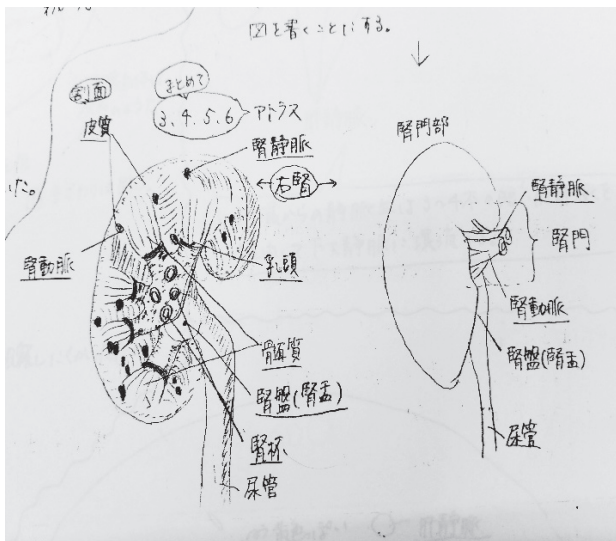 図を書くことにする。
割面
まとめて
3、4、5、6 アトラス
皮質
腎静脈
右腎
腎動脈
乳頭
髄質
腎盤(腎盂)
腎杯
尿管
腎門部
腎静脈
腎門
腎動脈
腎盤(腎盂)
尿管